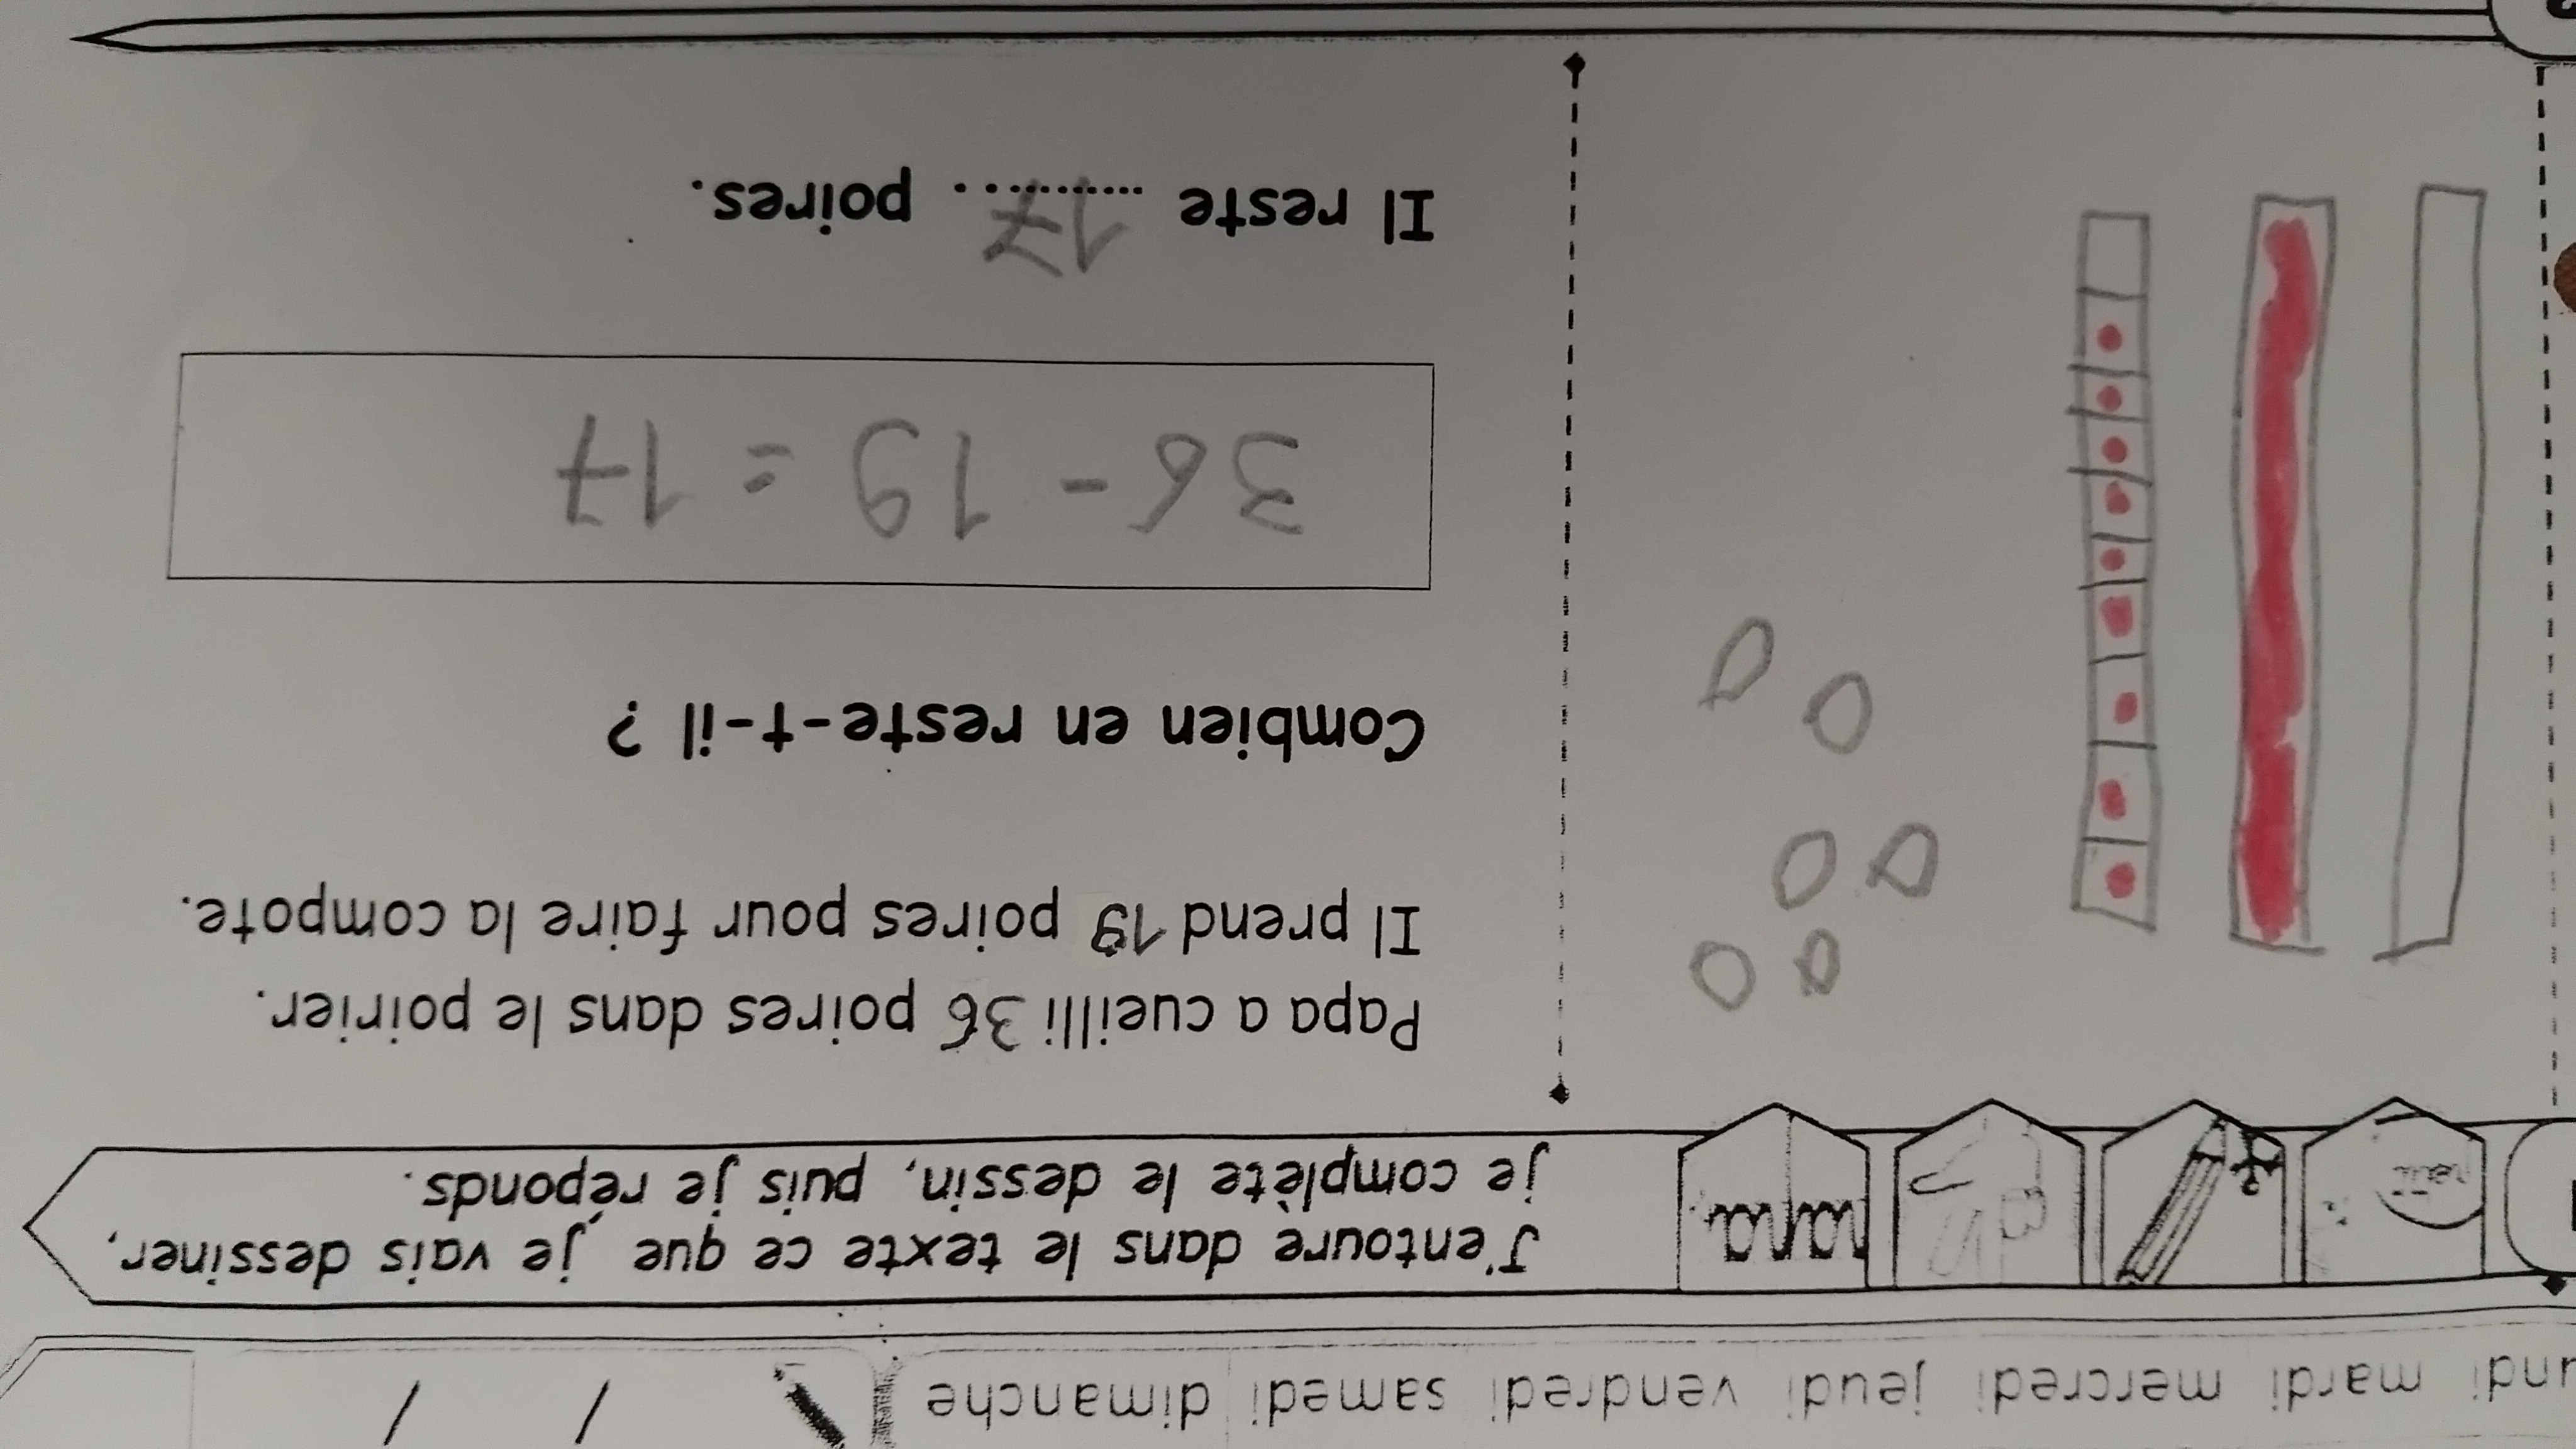 lundi mardi mercredi jeudi vendredi samedi dimanche / /
J'entoure dans le texte ce que je vais dessiner,
je complète le dessin, puis je réponds.
Papa a cueilli 36 poires dans le poirier.
Il prend 19 poires pour faire la compote.
Combien en reste-t-il ?
36 - 19 = 17
Il reste 17 poires.